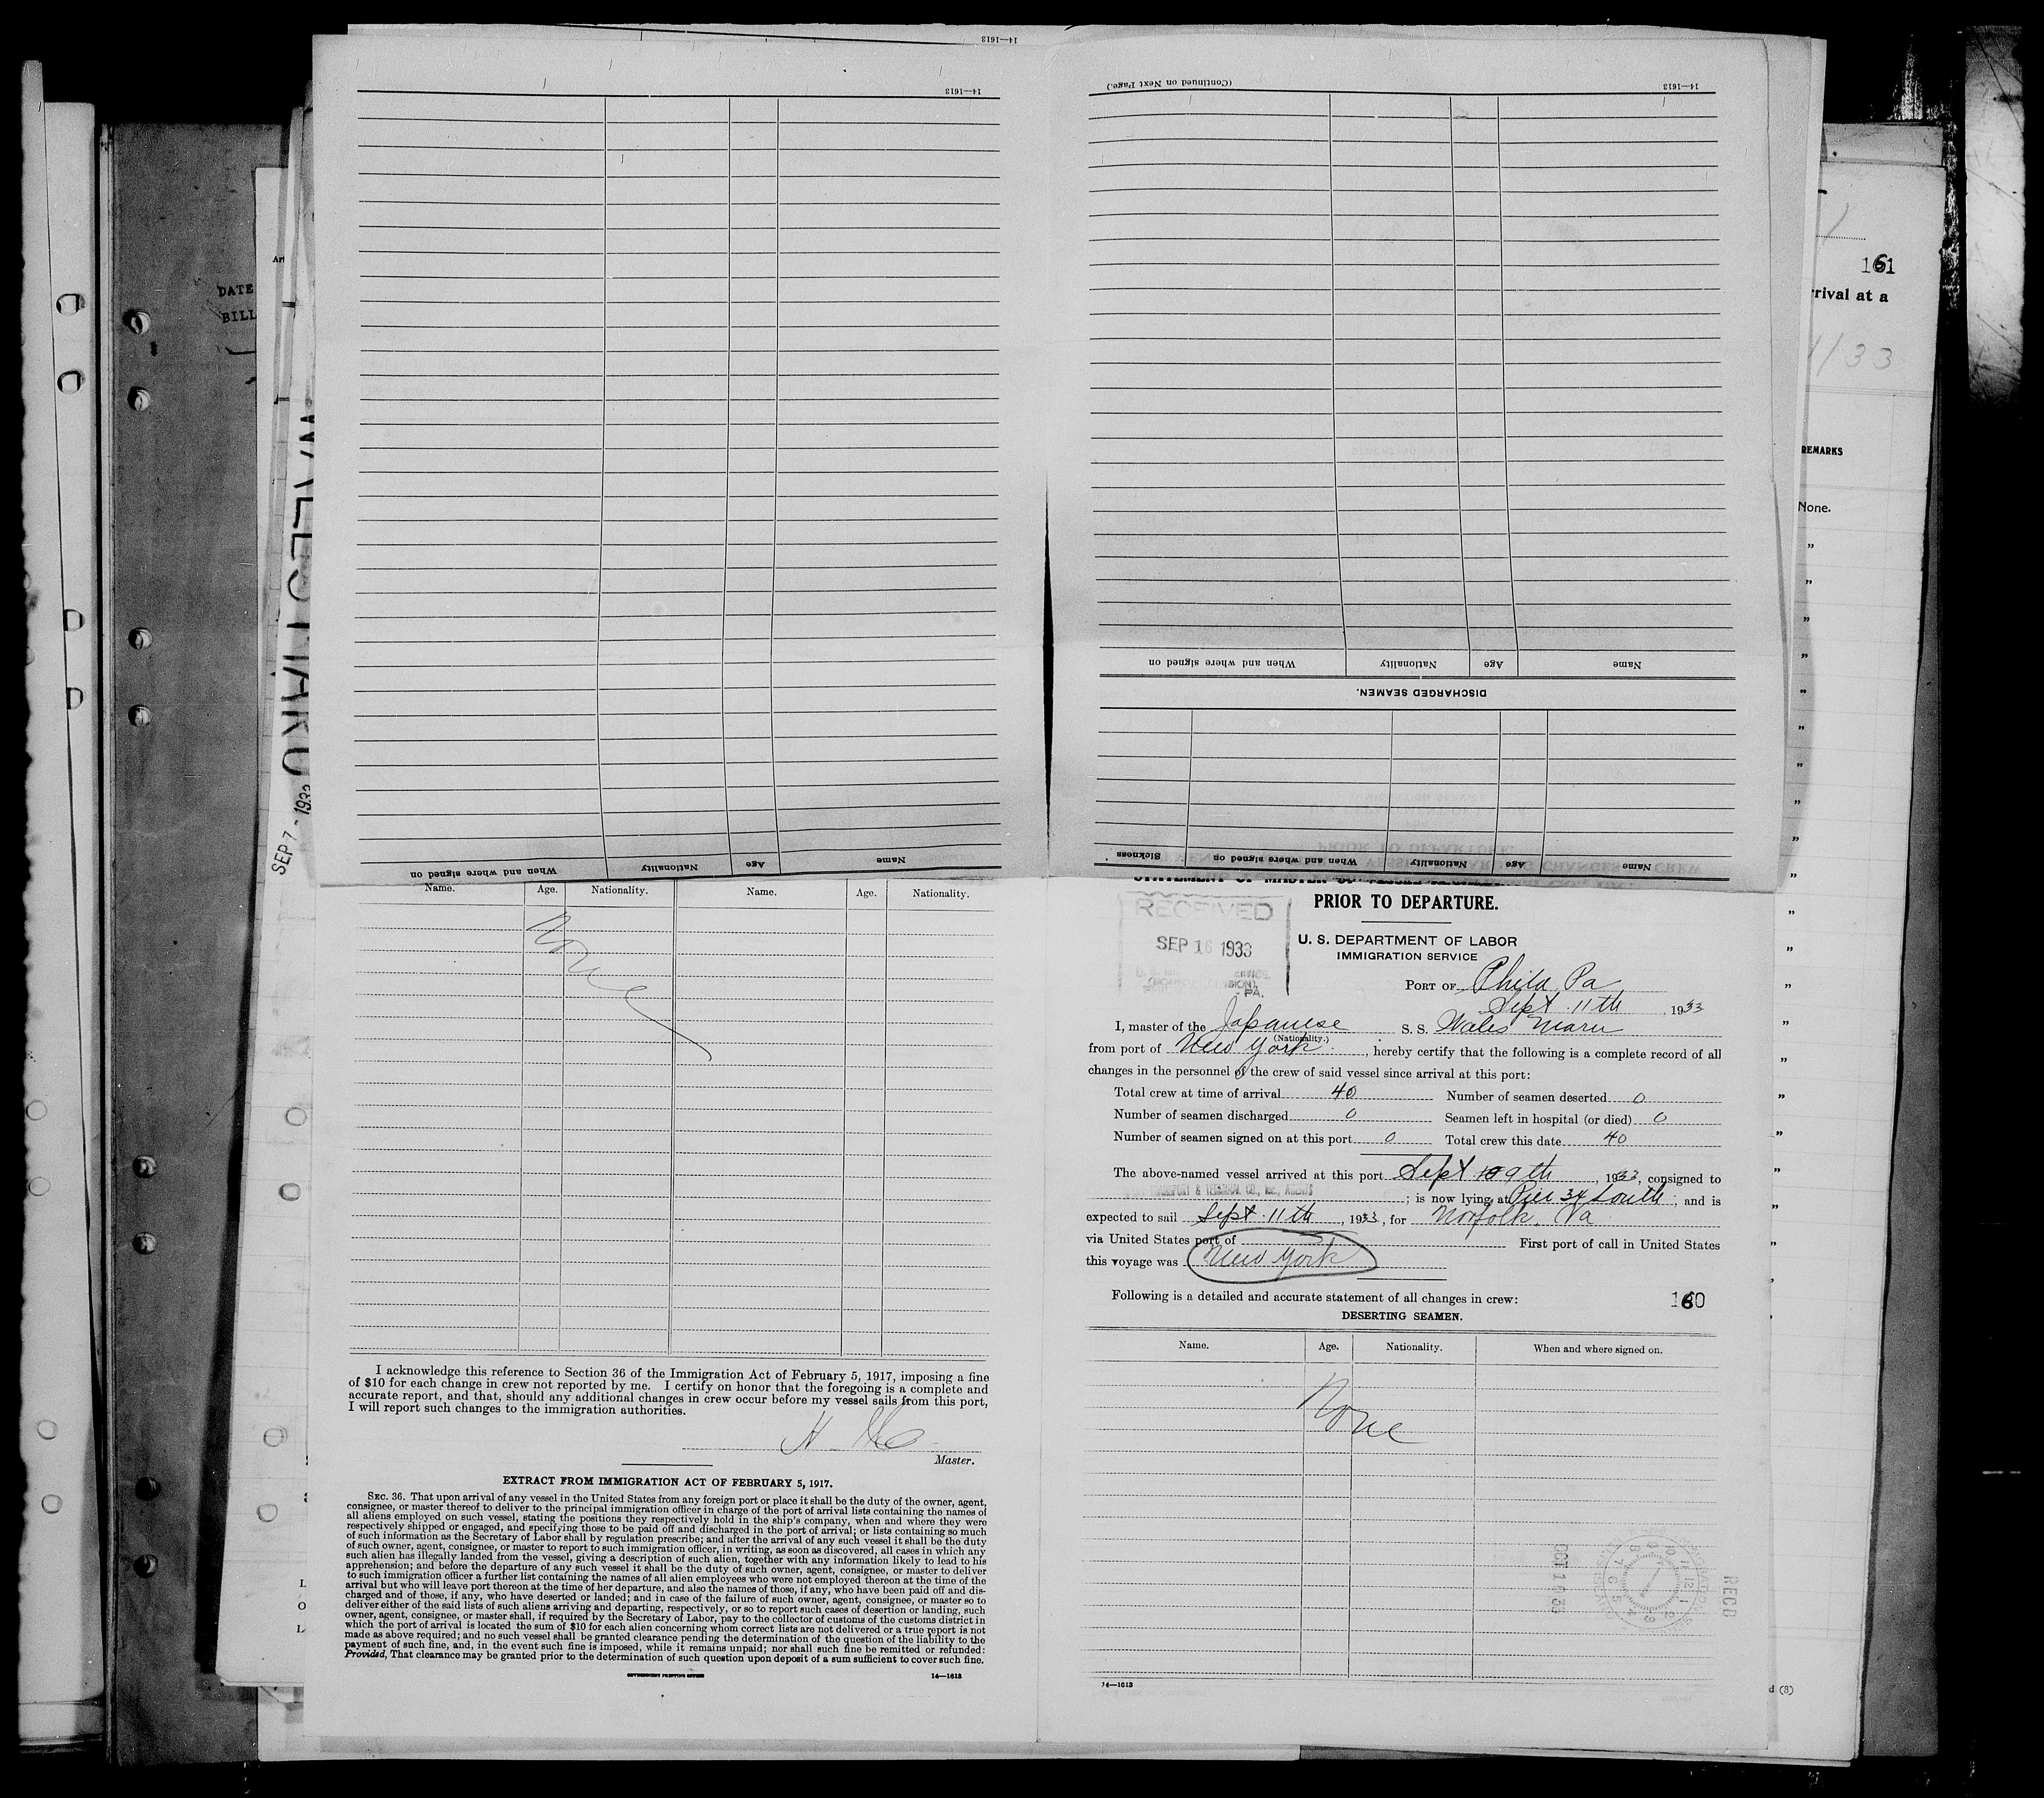 14—1613
14—1613
When and where signed on
Nationality
Age
Name
(Continued on Next Page.)
14—1613
When and where signed on
Nationality
Age
Name
DISCHARGED SEAMEN.
Sickness
When and where signed on
Nationality
Age
Name
DATE
BILL
WALES MARU
SEP 7 - 1933
Name. Age. Nationality. Name. Age. Nationality.
None
I acknowledge this reference to Section 36 of the Immigration Act of February 5, 1917, imposing a fine
of $10 for each change in crew not reported by me. I certify on honor that the foregoing is a complete and
accurate report, and that, should any additional changes in crew occur before my vessel sails from this port,
I will report such changes to the immigration authorities.
Master.
EXTRACT FROM IMMIGRATION ACT OF FEBRUARY 5, 1917.
SEC. 36. That upon arrival of any vessel in the United States from any foreign port or place it shall be the duty of the owner, agent,
consignee, or master thereof to deliver to the principal immigration officer in charge of the port of arrival lists containing the names of
all aliens employed on such vessel, stating the positions they respectively hold in the ship's company, when and where they were
respectively shipped or engaged, and specifying those to be paid off and discharged in the port of arrival; or lists containing so much
of such information as the Secretary of Labor shall by regulation prescribe; and after the arrival of any such vessel it shall be the duty
of such owner, agent, consignee, or master to report to such immigration officer, in writing, as soon as discovered, all cases in which any
such alien has illegally landed from the vessel, giving a description of such alien, together with any information likely to lead to his
apprehension; and before the departure of any such vessel it shall be the duty of such owner, agent, consignee, or master to deliver
to such immigration officer a further list containing the names of all alien employees who were not employed thereon at the time of the
arrival but who will leave port thereon at the time of her departure, and also the names of those, if any, who have been paid off and dis-
charged and of those, if any, who have deserted or landed; and in case of the failure of such owner, agent, consignee, or master so to
deliver either of the said lists of such aliens arriving and departing, respectively, or so to report such cases of desertion or landing, such
owner, agent, consignee, or master shall, if required by the Secretary of Labor, pay to the collector of customs of the customs district in
which the port of arrival is located the sum of $10 for each alien concerning whom correct lists are not delivered or a true report is not
made as above required; and no such vessel shall be granted clearance pending the determination of the question of the liability to the
payment of such fine, and, in the event such fine is imposed, while it remains unpaid; nor shall such fine be remitted or refunded:
Provided, That clearance may be granted prior to the determination of such question upon deposit of a sum sufficient to cover such fine.
GOVERNMENT PRINTING OFFICE 14—1613
PRIOR TO DEPARTURE.
RECEIVED
SEP 16 1933
PA.
U. S. DEPARTMENT OF LABOR
IMMIGRATION SERVICE
PORT OF Phila, Pa
Sept 11th, 1933
I, master of the Japanese S. S. Wales Maru
(Nationality.)
from port of New York, hereby certify that the following is a complete record of all
changes in the personnel of the crew of said vessel since arrival at this port:
Total crew at time of arrival 40 Number of seamen deserted 0
Number of seamen discharged 0 Seamen left in hospital (or died) 0
Number of seamen signed on at this port 0 Total crew this date 40
The above-named vessel arrived at this port Sept 9th, 1933, consigned to
; is now lying at Pier 34 South; and is
expected to sail Sept 11th, 1933, for Norfolk, Va
via United States port of First port of call in United States
this voyage was New York
Following is a detailed and accurate statement of all changes in crew: 160
DESERTING SEAMEN.
Name. Age. Nationality. When and where signed on.
None
RECD
14—1613
161
rrival at a
1/33
REMARKS
None.
d (8)